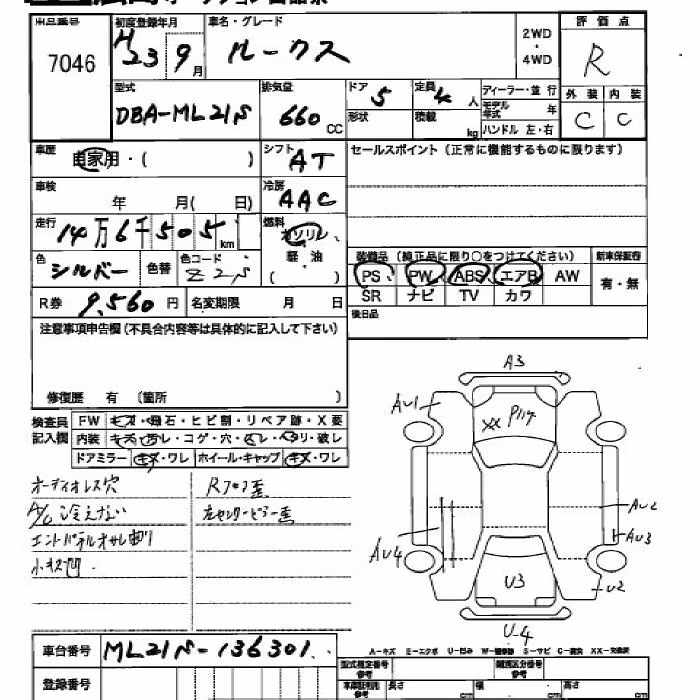 出品番号 初度登録年月 車名・グレード 2WD・4WD 評価点
7046 H23 9月 ルークス R
型式 排気量 ドア 定員 ディーラー・並行 外装 内装
DBA-ML21S 660cc 5 4人 モデル年式 年 C C
形状 積載 kg ハンドル 左・右
車歴 自家用・( ) シフト AT セールスポイント（正常に機能するものに限ります）
車検 年 月( 日) 冷房 AAC
走行 14万6千505km 燃料 ガソリン
軽・油
( )
色 シルバー 色替 色コード Z2S 装備品（純正品に限り○をつけてください） 新車保証書
PS PW ABS エアB AW 有・無
R券 9,560円 名変期限 月 日 SR ナビ TV カワ
後日品
注意事項申告欄（不具合内容等は具体的に記入して下さい）
修復歴 有 〔箇所 〕
検査員記入欄 FW キズ・飛石・ヒビ割・リペア跡・X要
内装 キズ・汚レ・コゲ・穴・スレ・ヘリ・破レ
ドアミラー キズ・ワレ ホイール・キャップ キズ・ワレ
オーディオレス穴
A/C冷えない
小キズ凹
A3
AU1
XX
AU2
AU3
AU4
U3
U2
U-4
車台番号 ML21S-136301
A－キズ E－エクボ U－凹み W－補修跡 S－サビ C－腐食 XX－交換済
登録番号 型式指定番号 類別区分番号
長さ cm 幅 cm 高さ cm